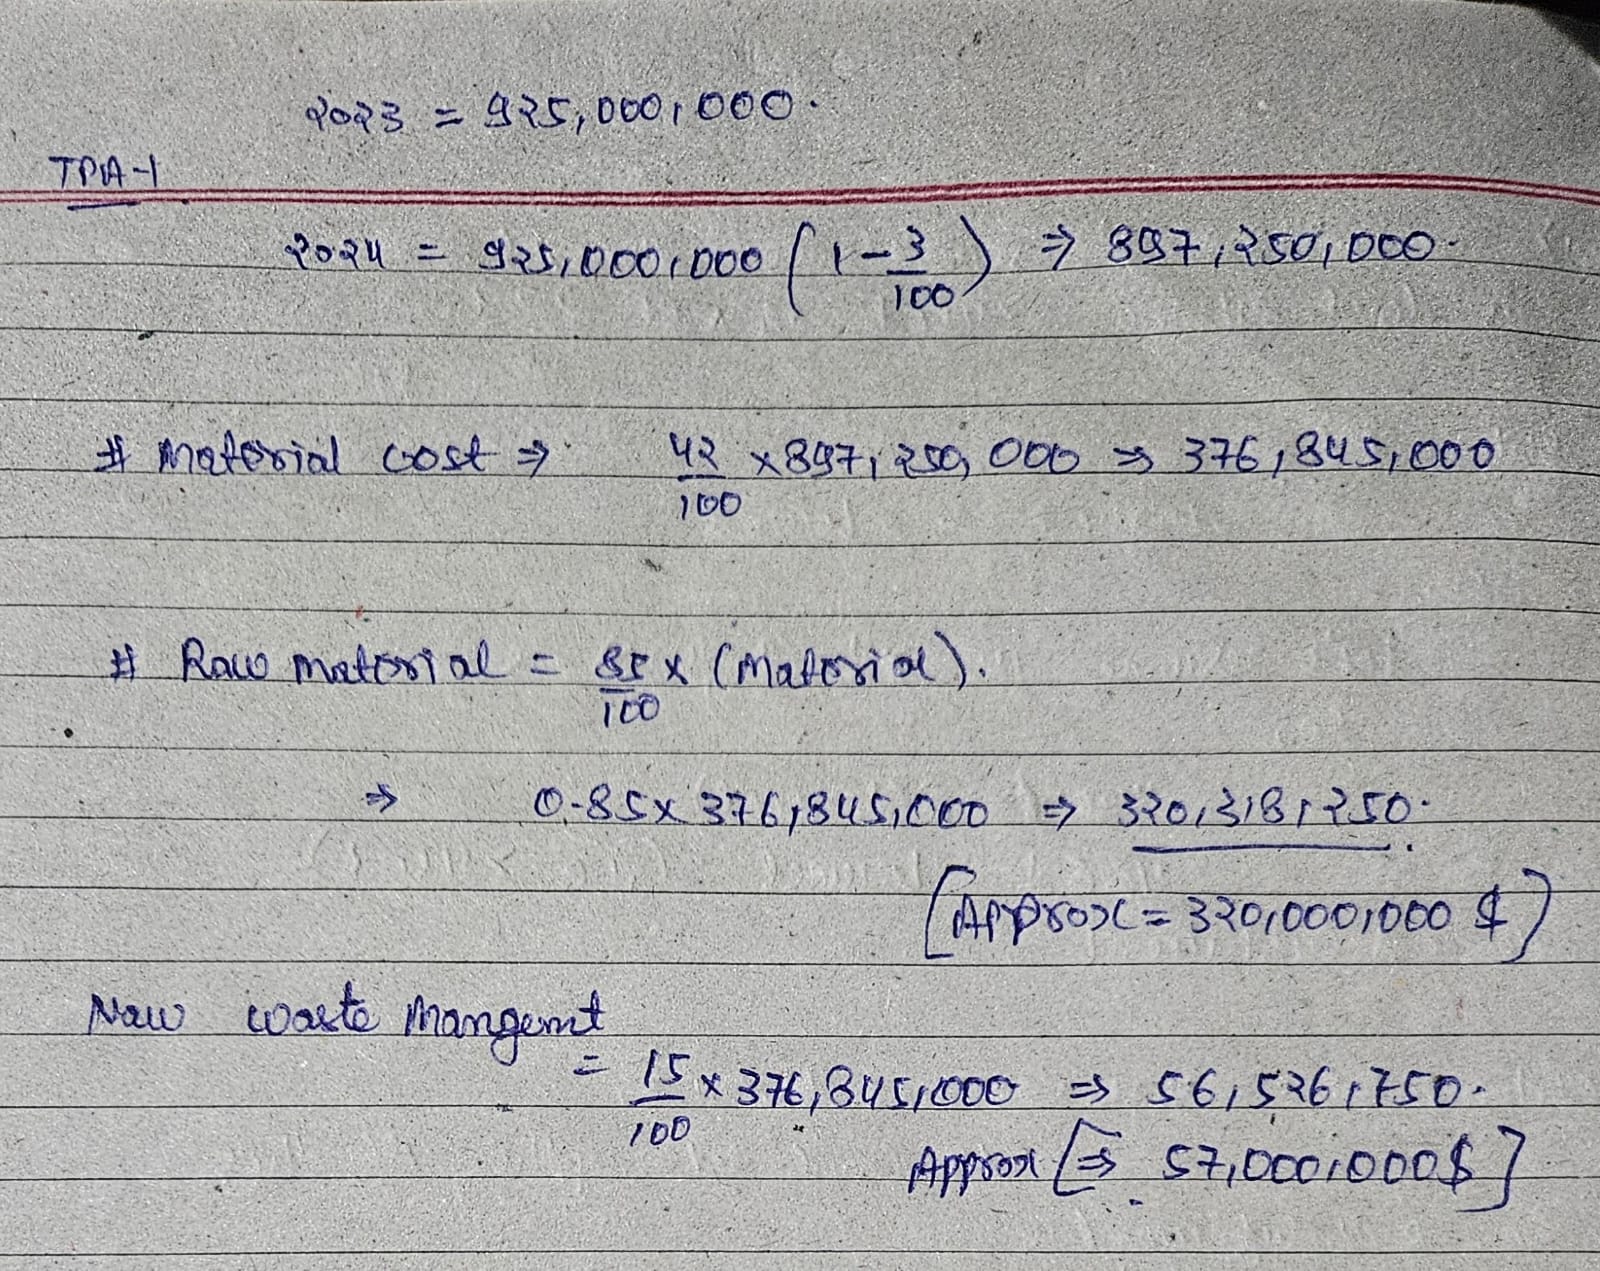 2023 = 925,000,000.
TPA-1
2024 = 925,000,000 (1-3/100) ⇒ 897,250,000.
# Material cost ⇒ 42/100 x897,250,000 ⇒ 376,845,000
# Raw material = 85/100 x (Material).
⇒ 0.85x 376,845,000 ⇒ 320,318,250.
[Approx = 320,000,000 $]
Now waste Mangemt
= 15/100 x 376,845,000 ⇒ 56,526,750.
Approx [⇒ 57,000,000$]